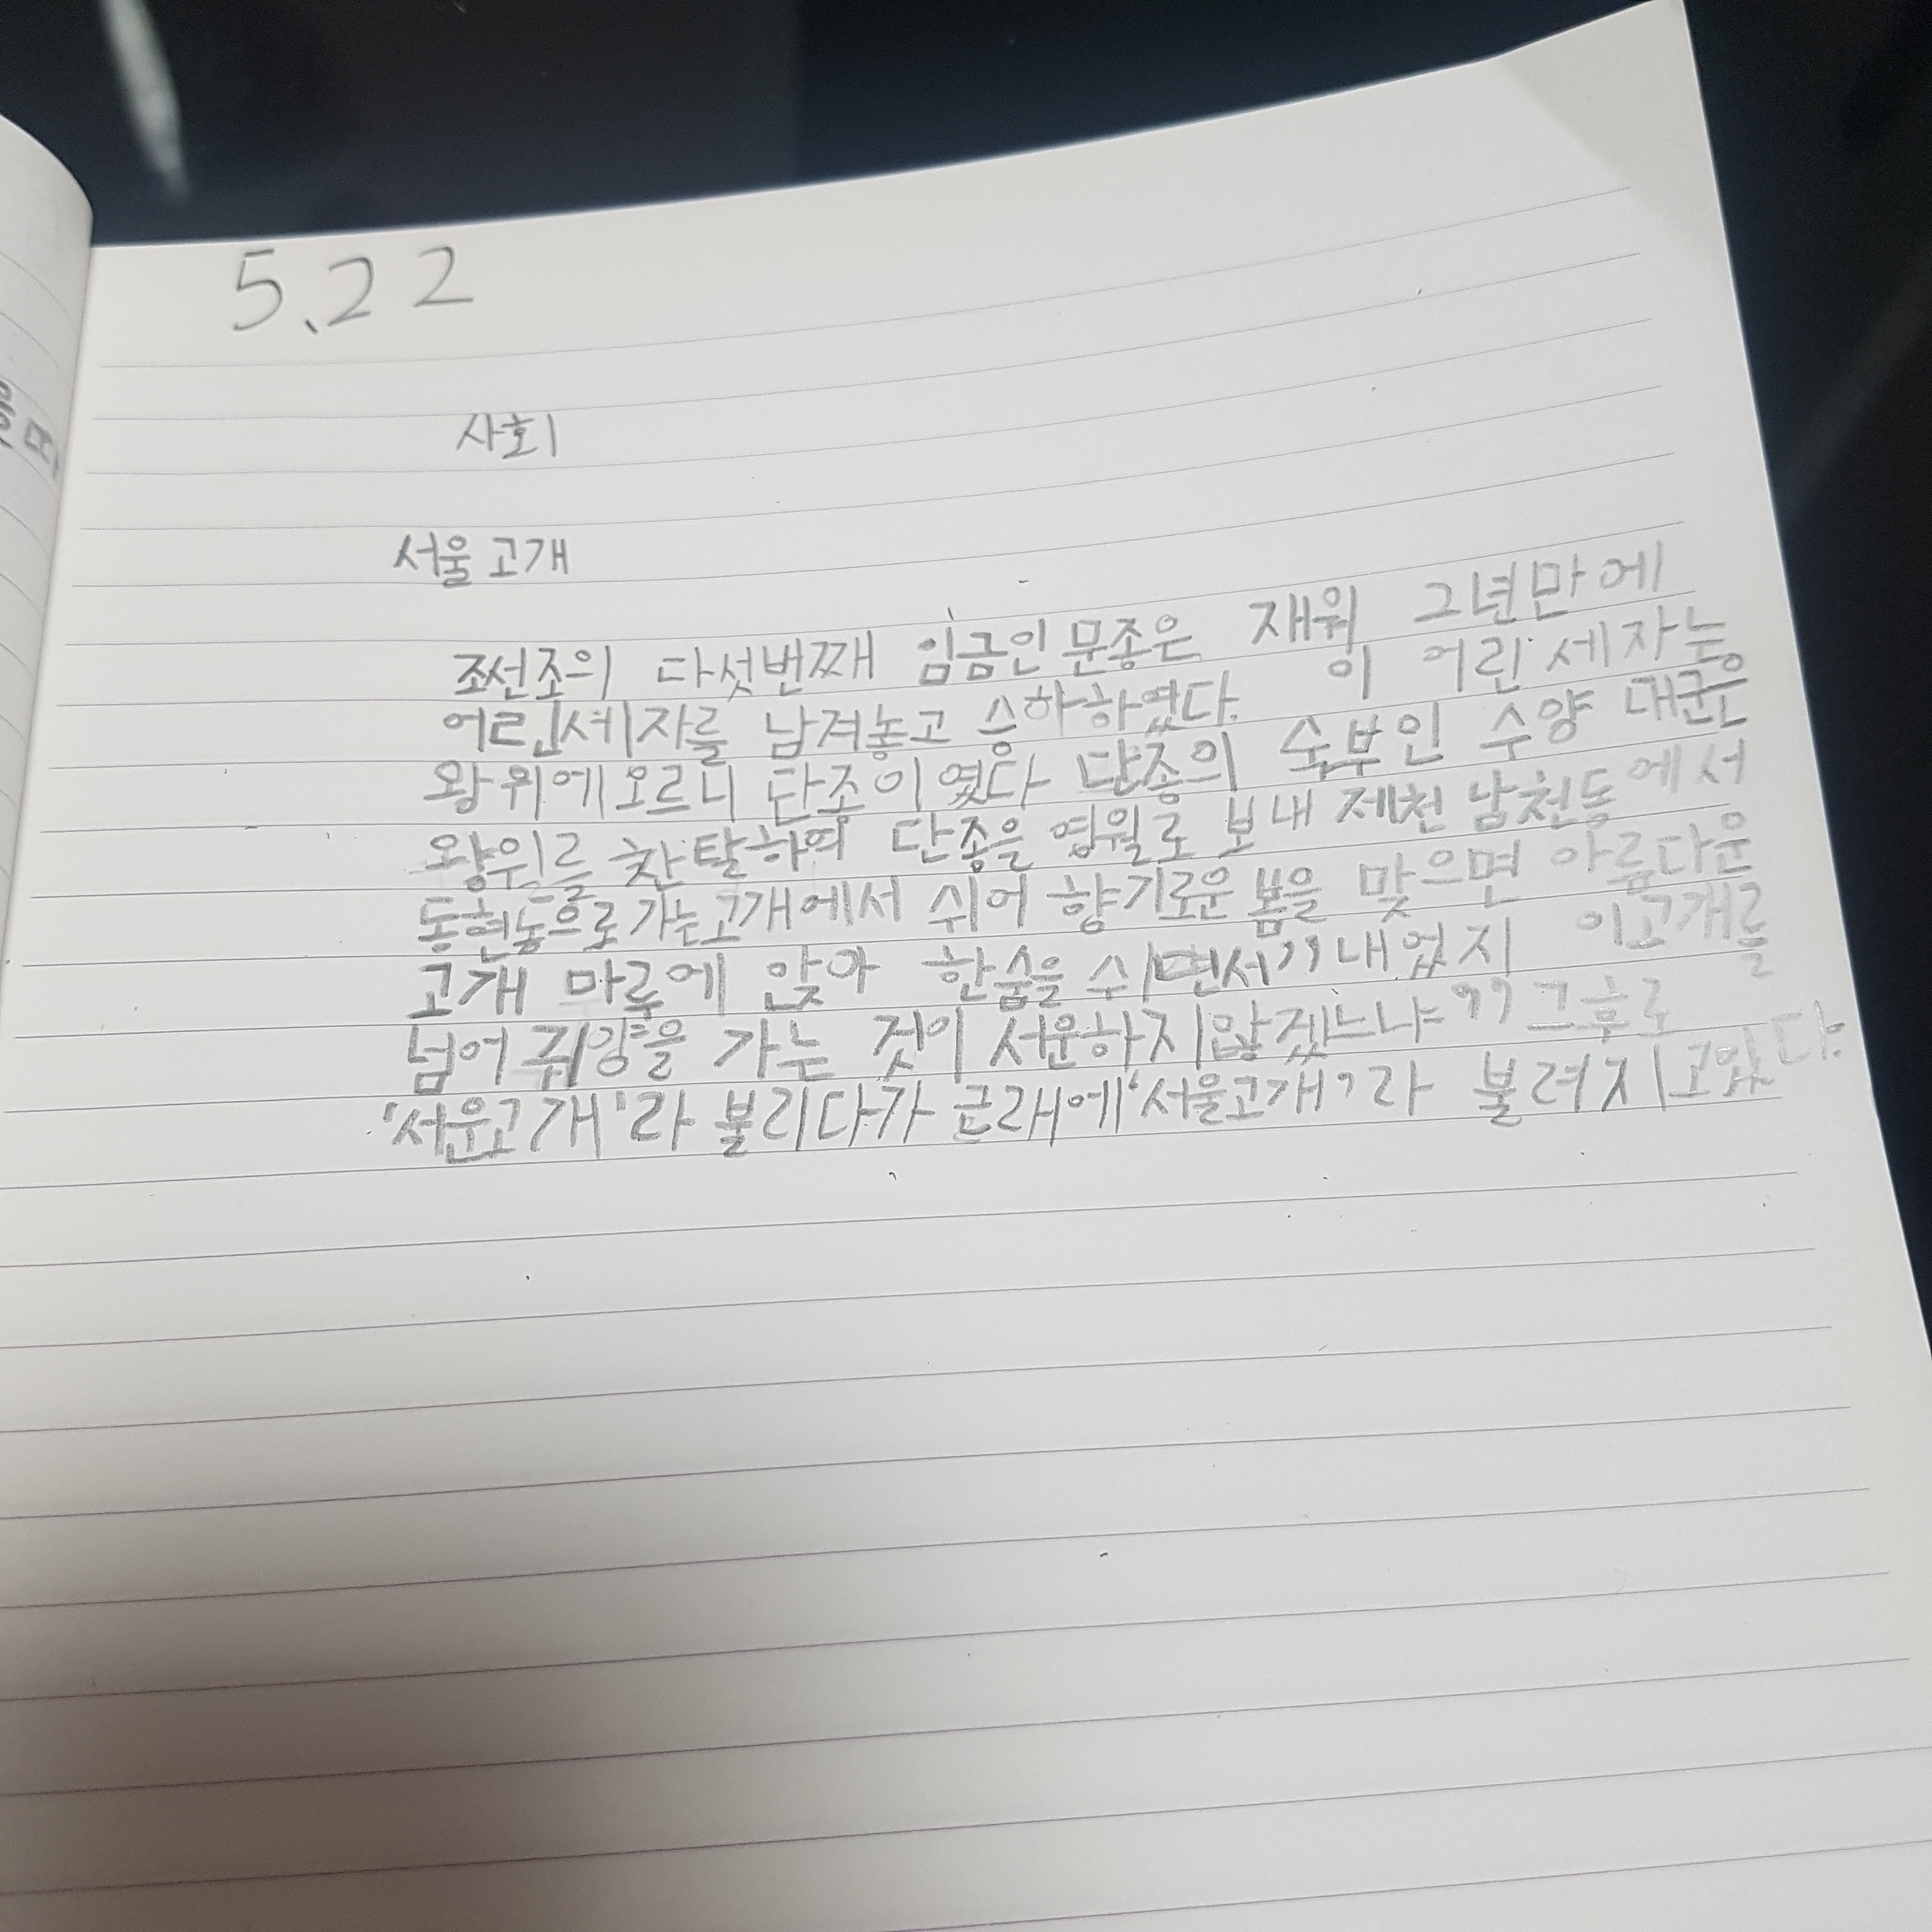 5.22
사회
서울 고개
조선조의 다섯번째 임금인 문종은 재위 그년만에
어린세자를 남겨놓고 승하하였다. 이 어린 세자는
왕위에오르니 단종이였다 단종의 숙부인 수양 대군은
왕위를 찬탈하여 단종을 영월로 보내 제천 남천동에서
동현동으로 가는고개에서 쉬어 향기로운 봄을 맞으면 아름다운
고개 마루에 앉아 한숨을 쉬면서 "내 었지 이고개를
넘어 귀양을 가는 것이 서운하지않겠느냐" 그후로
'서운고개'라 불리다가 근래에 '서울고개'라 불려지고있다.